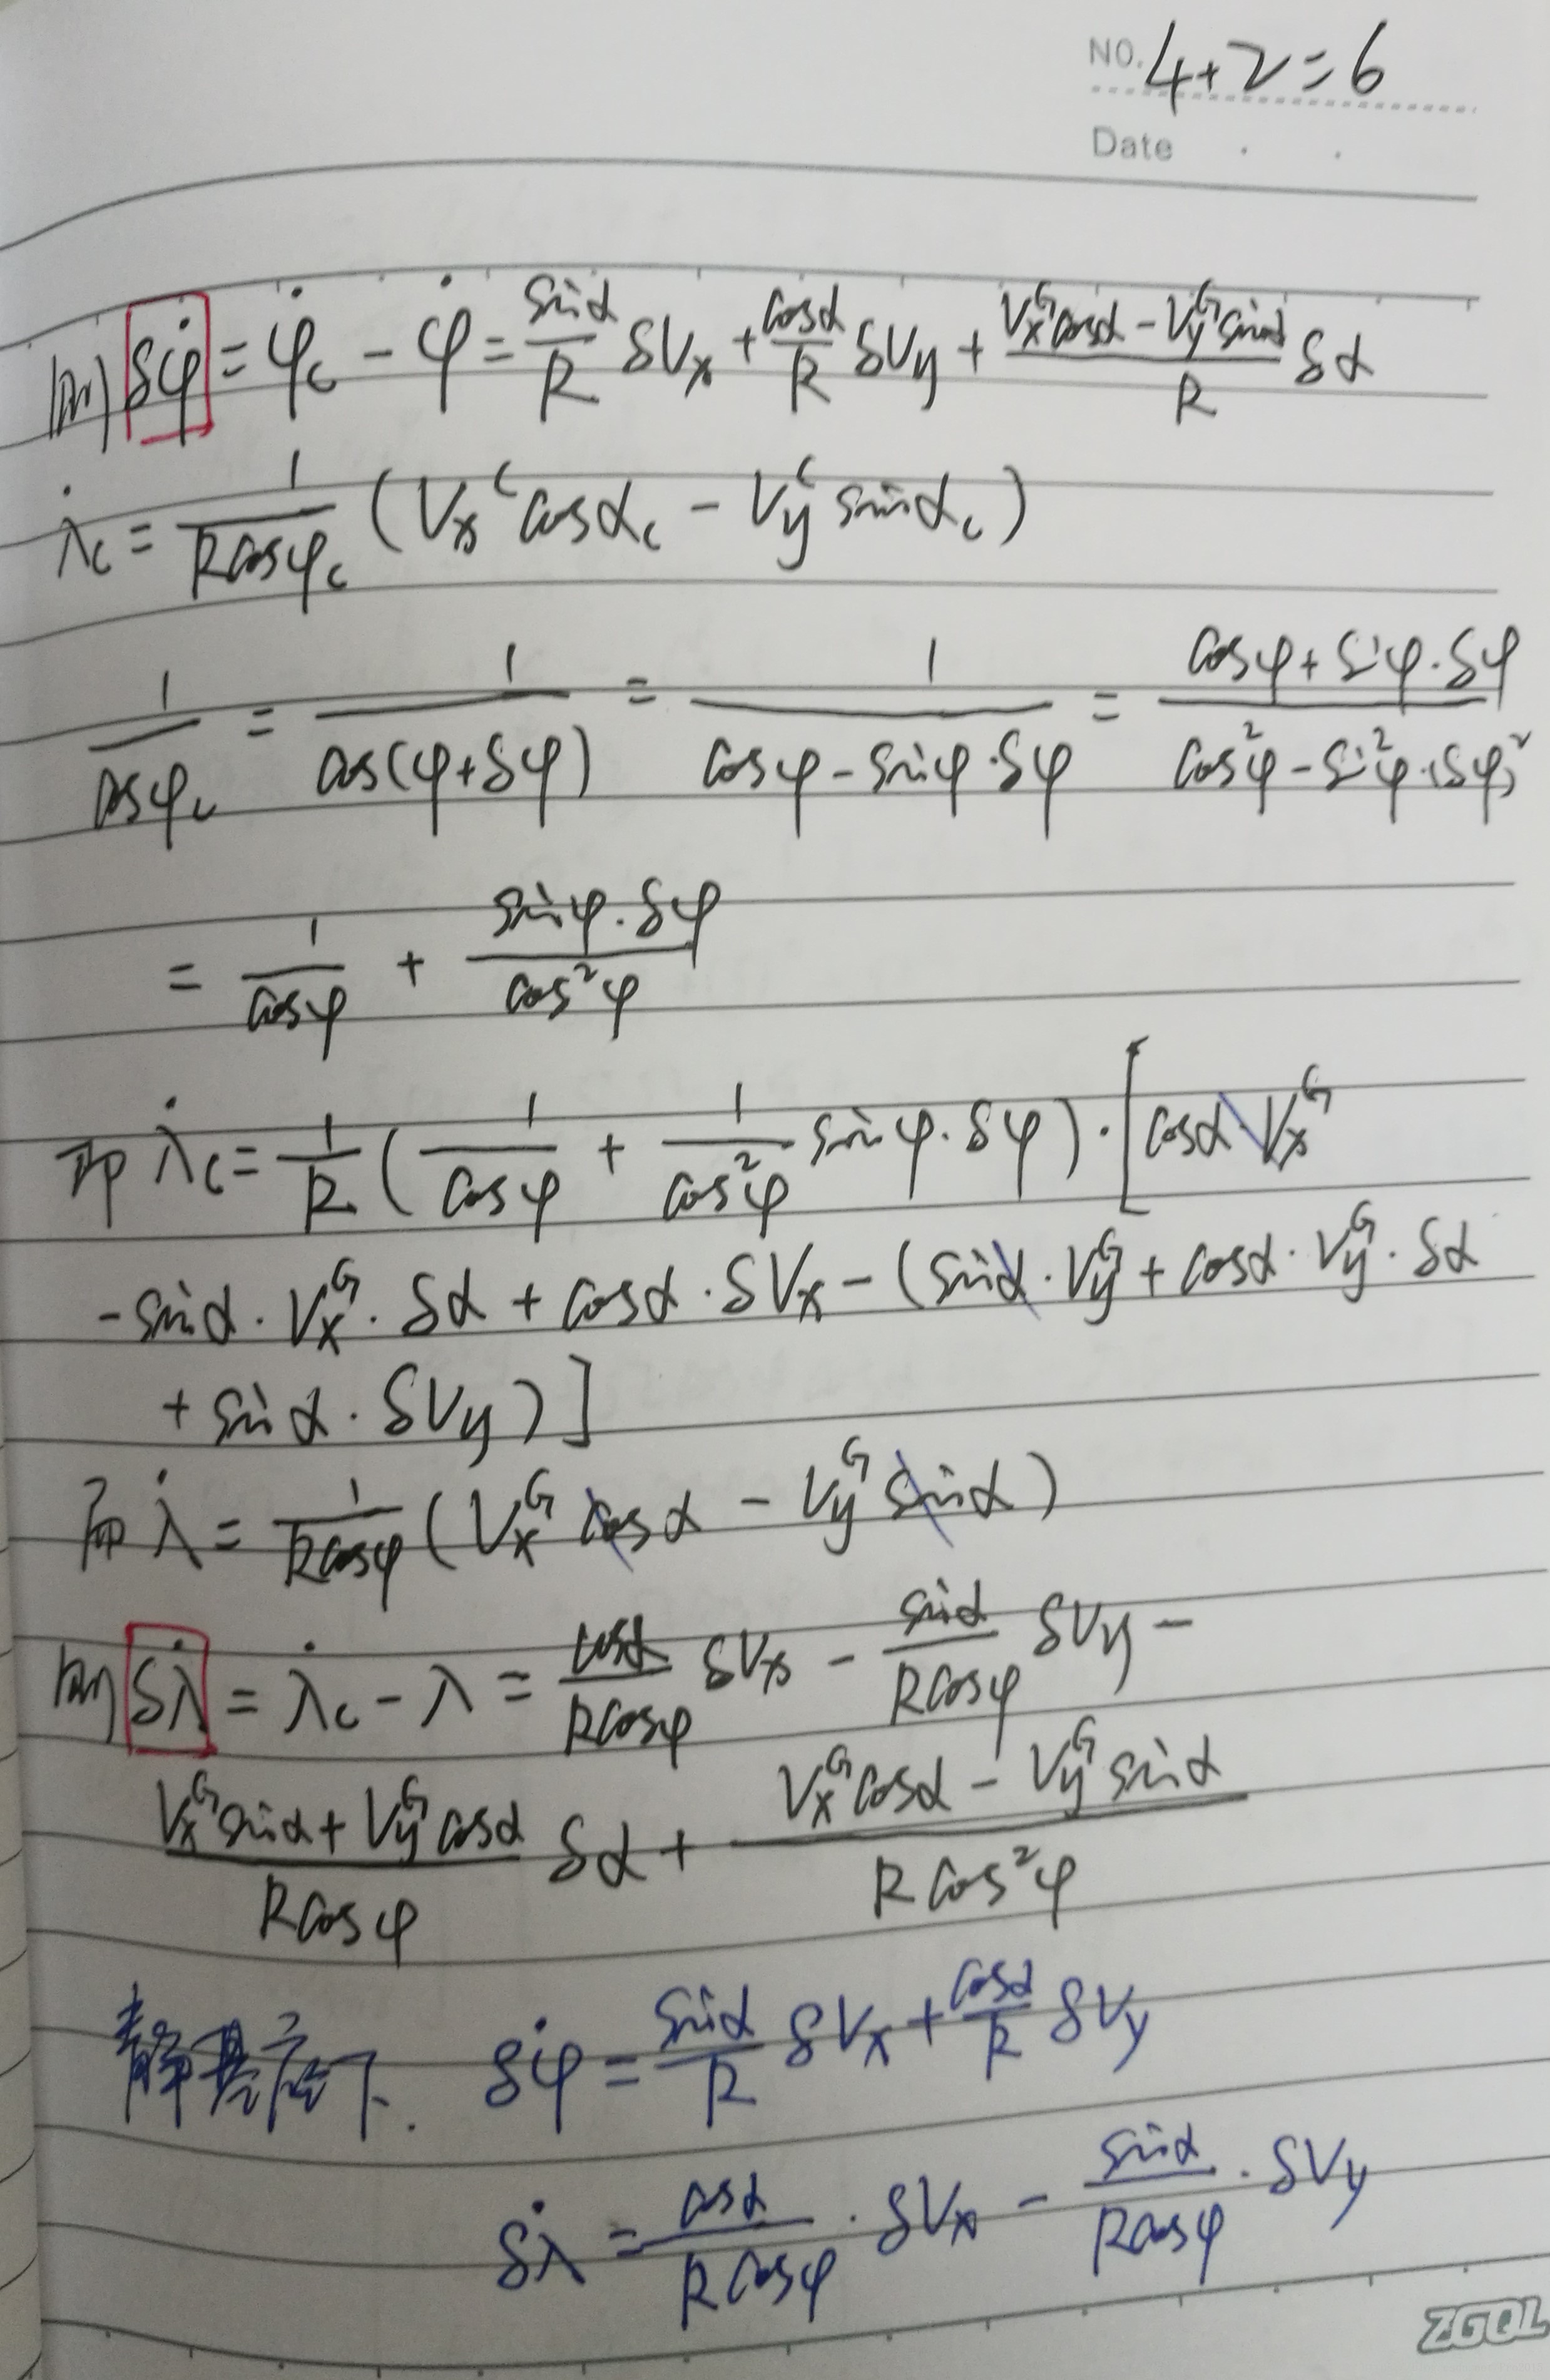 NO. 4+2=6
Date
则 δφ̇ = φ̇c - φ̇ = sinα/R δVx + cosα/R δVy + (Vx^G cosα - Vy^G sinα)/R δα
λ̇c = 1/(R cosφc) (Vx^c cosαc - Vy^c sinαc)
1/cosφc = 1/cos(φ+δφ) = 1/(cosφ - sinφ·δφ) = (cosφ + sinφ·δφ)/(cos²φ - sin²φ·(δφ)²)
= 1/cosφ + sinφ·δφ/cos²φ
即 λ̇c = 1/R (1/cosφ + 1/cos²φ sinφ·δφ)·[cosα Vx^G
- sinα·Vx^G·δα + cosα·δVx - (sinα·Vy^G + cosα·Vy^G·δα
+ sinα·δVy)]
而 λ̇ = 1/(R cosφ) (Vx^G cosα - Vy^G sinα)
则 δλ̇ = λ̇c - λ = cosα/(R cosφ) δVx - sinα/(R cosφ) δVy -
(Vx^G sinα + Vy^G cosα)/(R cosφ) δα + (Vx^G cosα - Vy^G sinα)/(R cos²φ)
静基座下. δφ̇ = sinα/R δVx + cosα/R δVy
δλ̇ = cosα/(R cosφ)·δVx - sinα/(R cosφ)·δVy
ZGQL